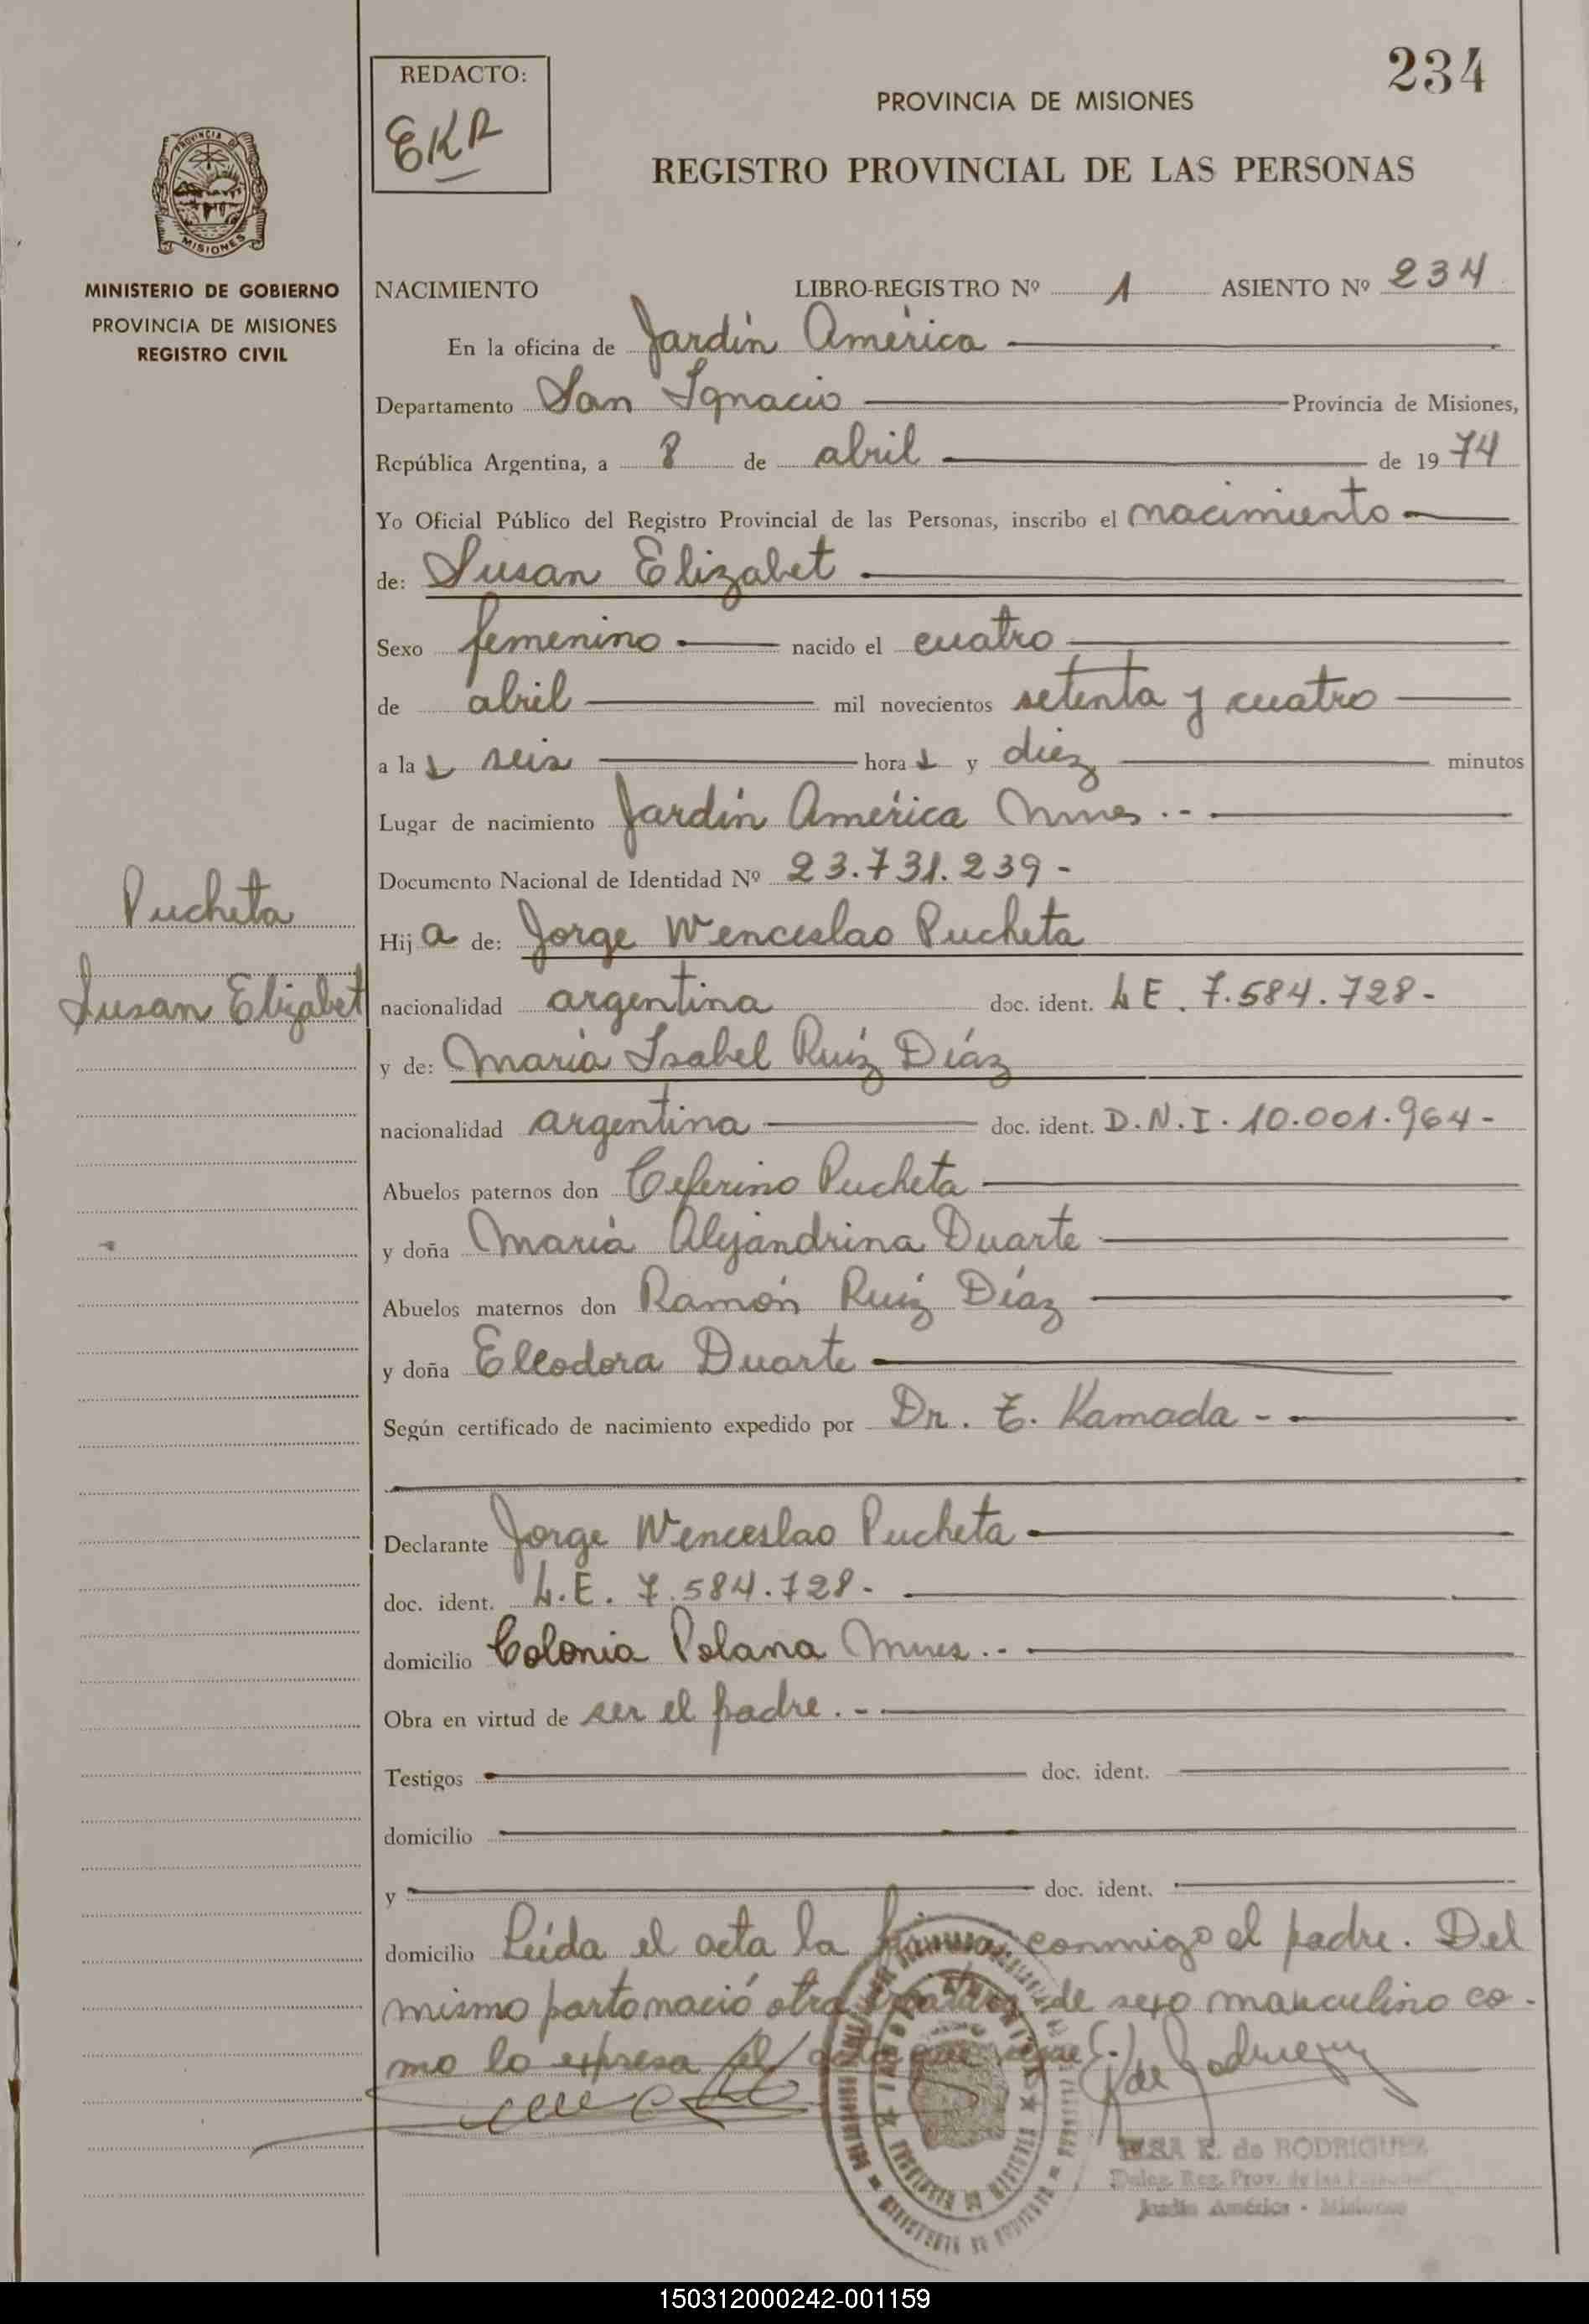 234
REDACTO:
EKR
PROVINCIA DE MISIONES
REGISTRO PROVINCIAL DE LAS PERSONAS
PROVINCIA DE
MISIONES
MINISTERIO DE GOBIERNO
PROVINCIA DE MISIONES
REGISTRO CIVIL
NACIMIENTO LIBRO-REGISTRO Nº 1 ASIENTO Nº 234
En la oficina de Jardín América
Departamento San Ignacio Provincia de Misiones,
República Argentina, a 8 de abril de 1974
Yo Oficial Público del Registro Provincial de las Personas, inscribo el nacimiento
de: Susan Elizabet
Sexo femenino nacido el cuatro
de abril mil novecientos setenta y cuatro
a las seis horas y diez minutos
Lugar de nacimiento Jardín América Mnes .-
Documento Nacional de Identidad Nº 23.731.239-
Pucheta
Susan Elizabet
Hija de: Jorge Wenceslao Pucheta
nacionalidad argentina doc. ident. LE. 7.584.728-
y de: María Isabel Ruíz Díaz
nacionalidad argentina doc. ident. D.N.I. 10.001.964-
Abuelos paternos don Ceferino Pucheta
y doña María Alejandrina Duarte
Abuelos maternos don Ramón Ruíz Díaz
y doña Eleodora Duarte
Según certificado de nacimiento expedido por Dr. T. Kamada -
Declarante Jorge Wenceslao Pucheta
doc. ident. L.E. 7.584.728-
domicilio Colonia Polana Mnes .-
Obra en virtud de ser el padre .-
Testigos doc. ident.
domicilio
y doc. ident.
domicilio Leída el acta la firma conmigo el padre. Del
mismo parto nació otra criatura de sexo masculino co-
mo lo expresa el acta que sigue
K. de RODRIGUEZ
Deleg. Reg. Prov. de las
Jardín América - Misiones
150312000242-001159